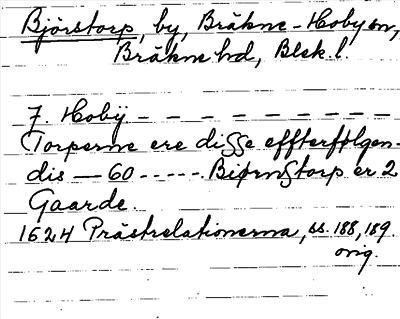 Björstorp, by, Bräkne-Hoby sn,
Bräkne hd, Blek. l.
J. Hobÿ - - - - - - - - -
Torperne ere disse effterfølgen-
dis — 60 - - - - - Biørnstorp er 2
Gaarde.
1624 Prästrelationerna, ss. 188, 189.
orig.